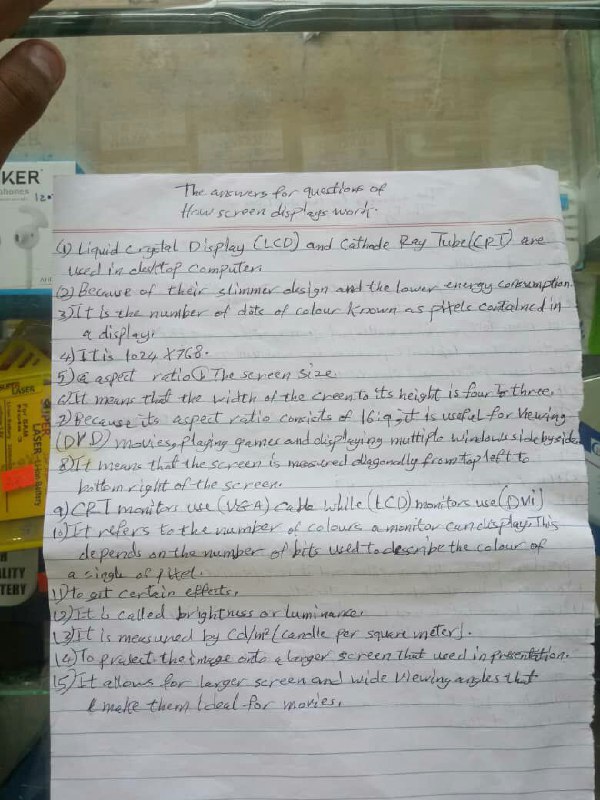 KER
phones
The answers for questions of
How screen displays work.
(1) Liquid Crystal Display (LCD) and Cathode Ray Tube (CRT) are
used in desktop computer.
(2) Because of their slimmer design and the lower energy consumption.
3) It is the number of dots of colour known as pixels contained in
a display.
4) It is 1024 X 768.
5) a aspect ratio b The screen size
6) It means that the width of the creen to its height is four to three.
7) Because its aspect ratio consists of 16:9, it is useful for viewing
(DVD) movies, playing games and displaying multiple windows side by side.
8) It means that the screen is measured diagonally from top left to
bottom right of the screen.
9) CRT monitors use (VGA) cable while (LCD) monitors use (DVi)
10) It refers to the number of colours a monitor can display. This
depends on the number of bits used to describe the colour of
a single of pixel.
11) To get certain effects.
12) It is called brightness or luminance.
13) It is measured by Cd/m² (candle per square meter).
14) To project the image onto a larger screen that used in presentation.
15) It allows for larger screen and wide viewing angles that
make them ideal for movies.
LASER
SUPER
LASER
Li-ion Battery